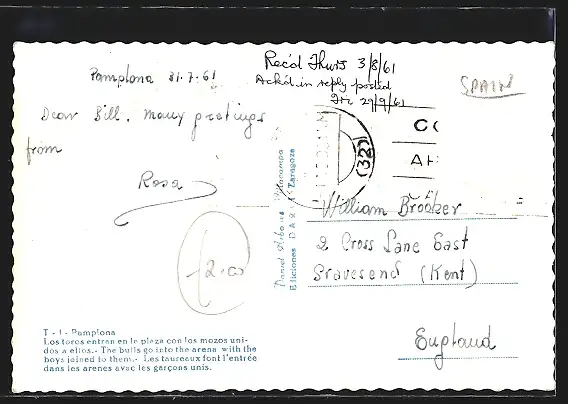 Pamplona 31.7.61
Recd Thurs 3/8/61
Ackd in reply posted
Fri 29/9/61
SPAIN
Dear Bill. Many greetings
from
Rosa
(32)
William Brooker
2 Cross Lane East
Gravesend (Kent)
England
£2.00
Daniel Arbones Villacampa
Ediciones DARVI Zaragoza
T - 1 - Pamplona
Los toros entran en la plaza con los mozos uni-
dos a ellos.- The bulls go into the arena with the
boys joined to them.- Les taureaux font l'entrée
dans les arenes avec les garçons unis.